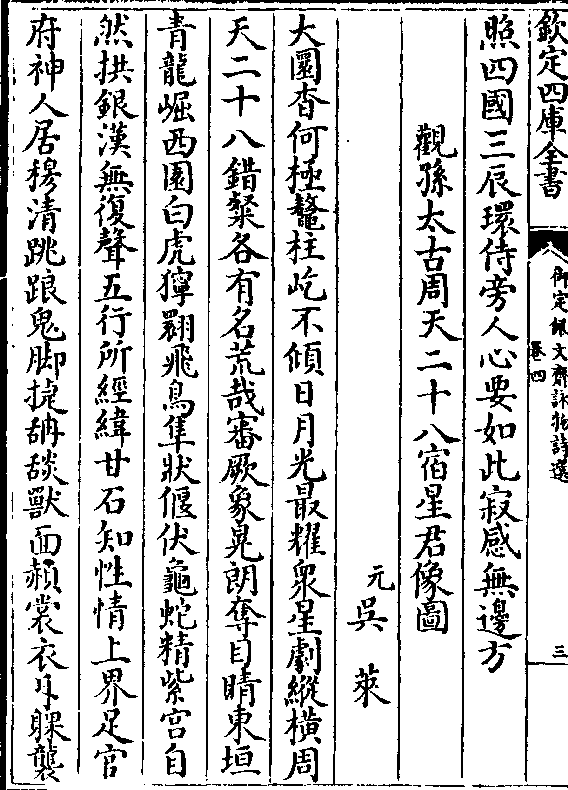 欽定四庫全書
御定佩文齋詠物詩選
卷四
三
照四國三辰環侍旁人心要如此寂感無邊方
觀孫太古周天二十八宿星君像圖
元吳萊
大圜杳何極鼇柱屹不傾日月光最耀衆星劇縱橫周
天二十八錯粲各有名荒哉審厥象晃朗奪目睛東垣
青龍崛西圉白虎獰翾飛鳥隼狀偃伏龜蛇精紫宮自
然拱銀漢無復聲五行所經緯甘石知性情上界足官
府神人居穆清跳踉鬼脚捷舑舕獸面赬裳衣躶襲